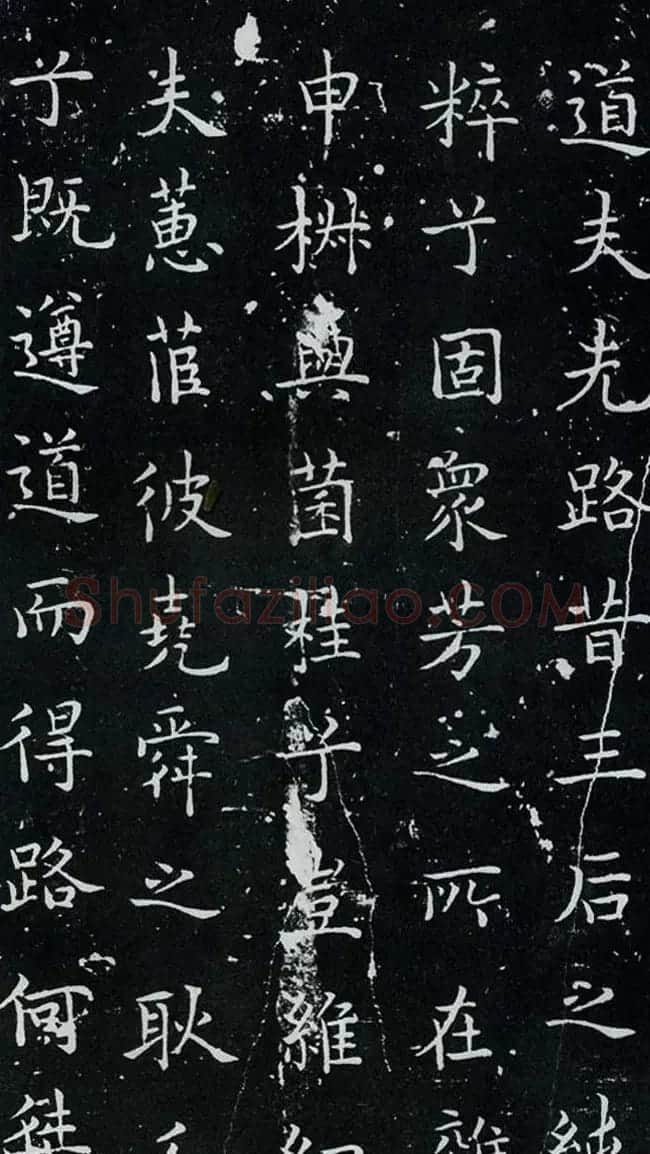 道夫先路昔三后之純
粹兮固衆芳之所在雜
申椒與菌桂兮豈維紉
夫蕙茝彼堯舜之耿
兮既遵道而得路何桀
Shufaziliao.COM